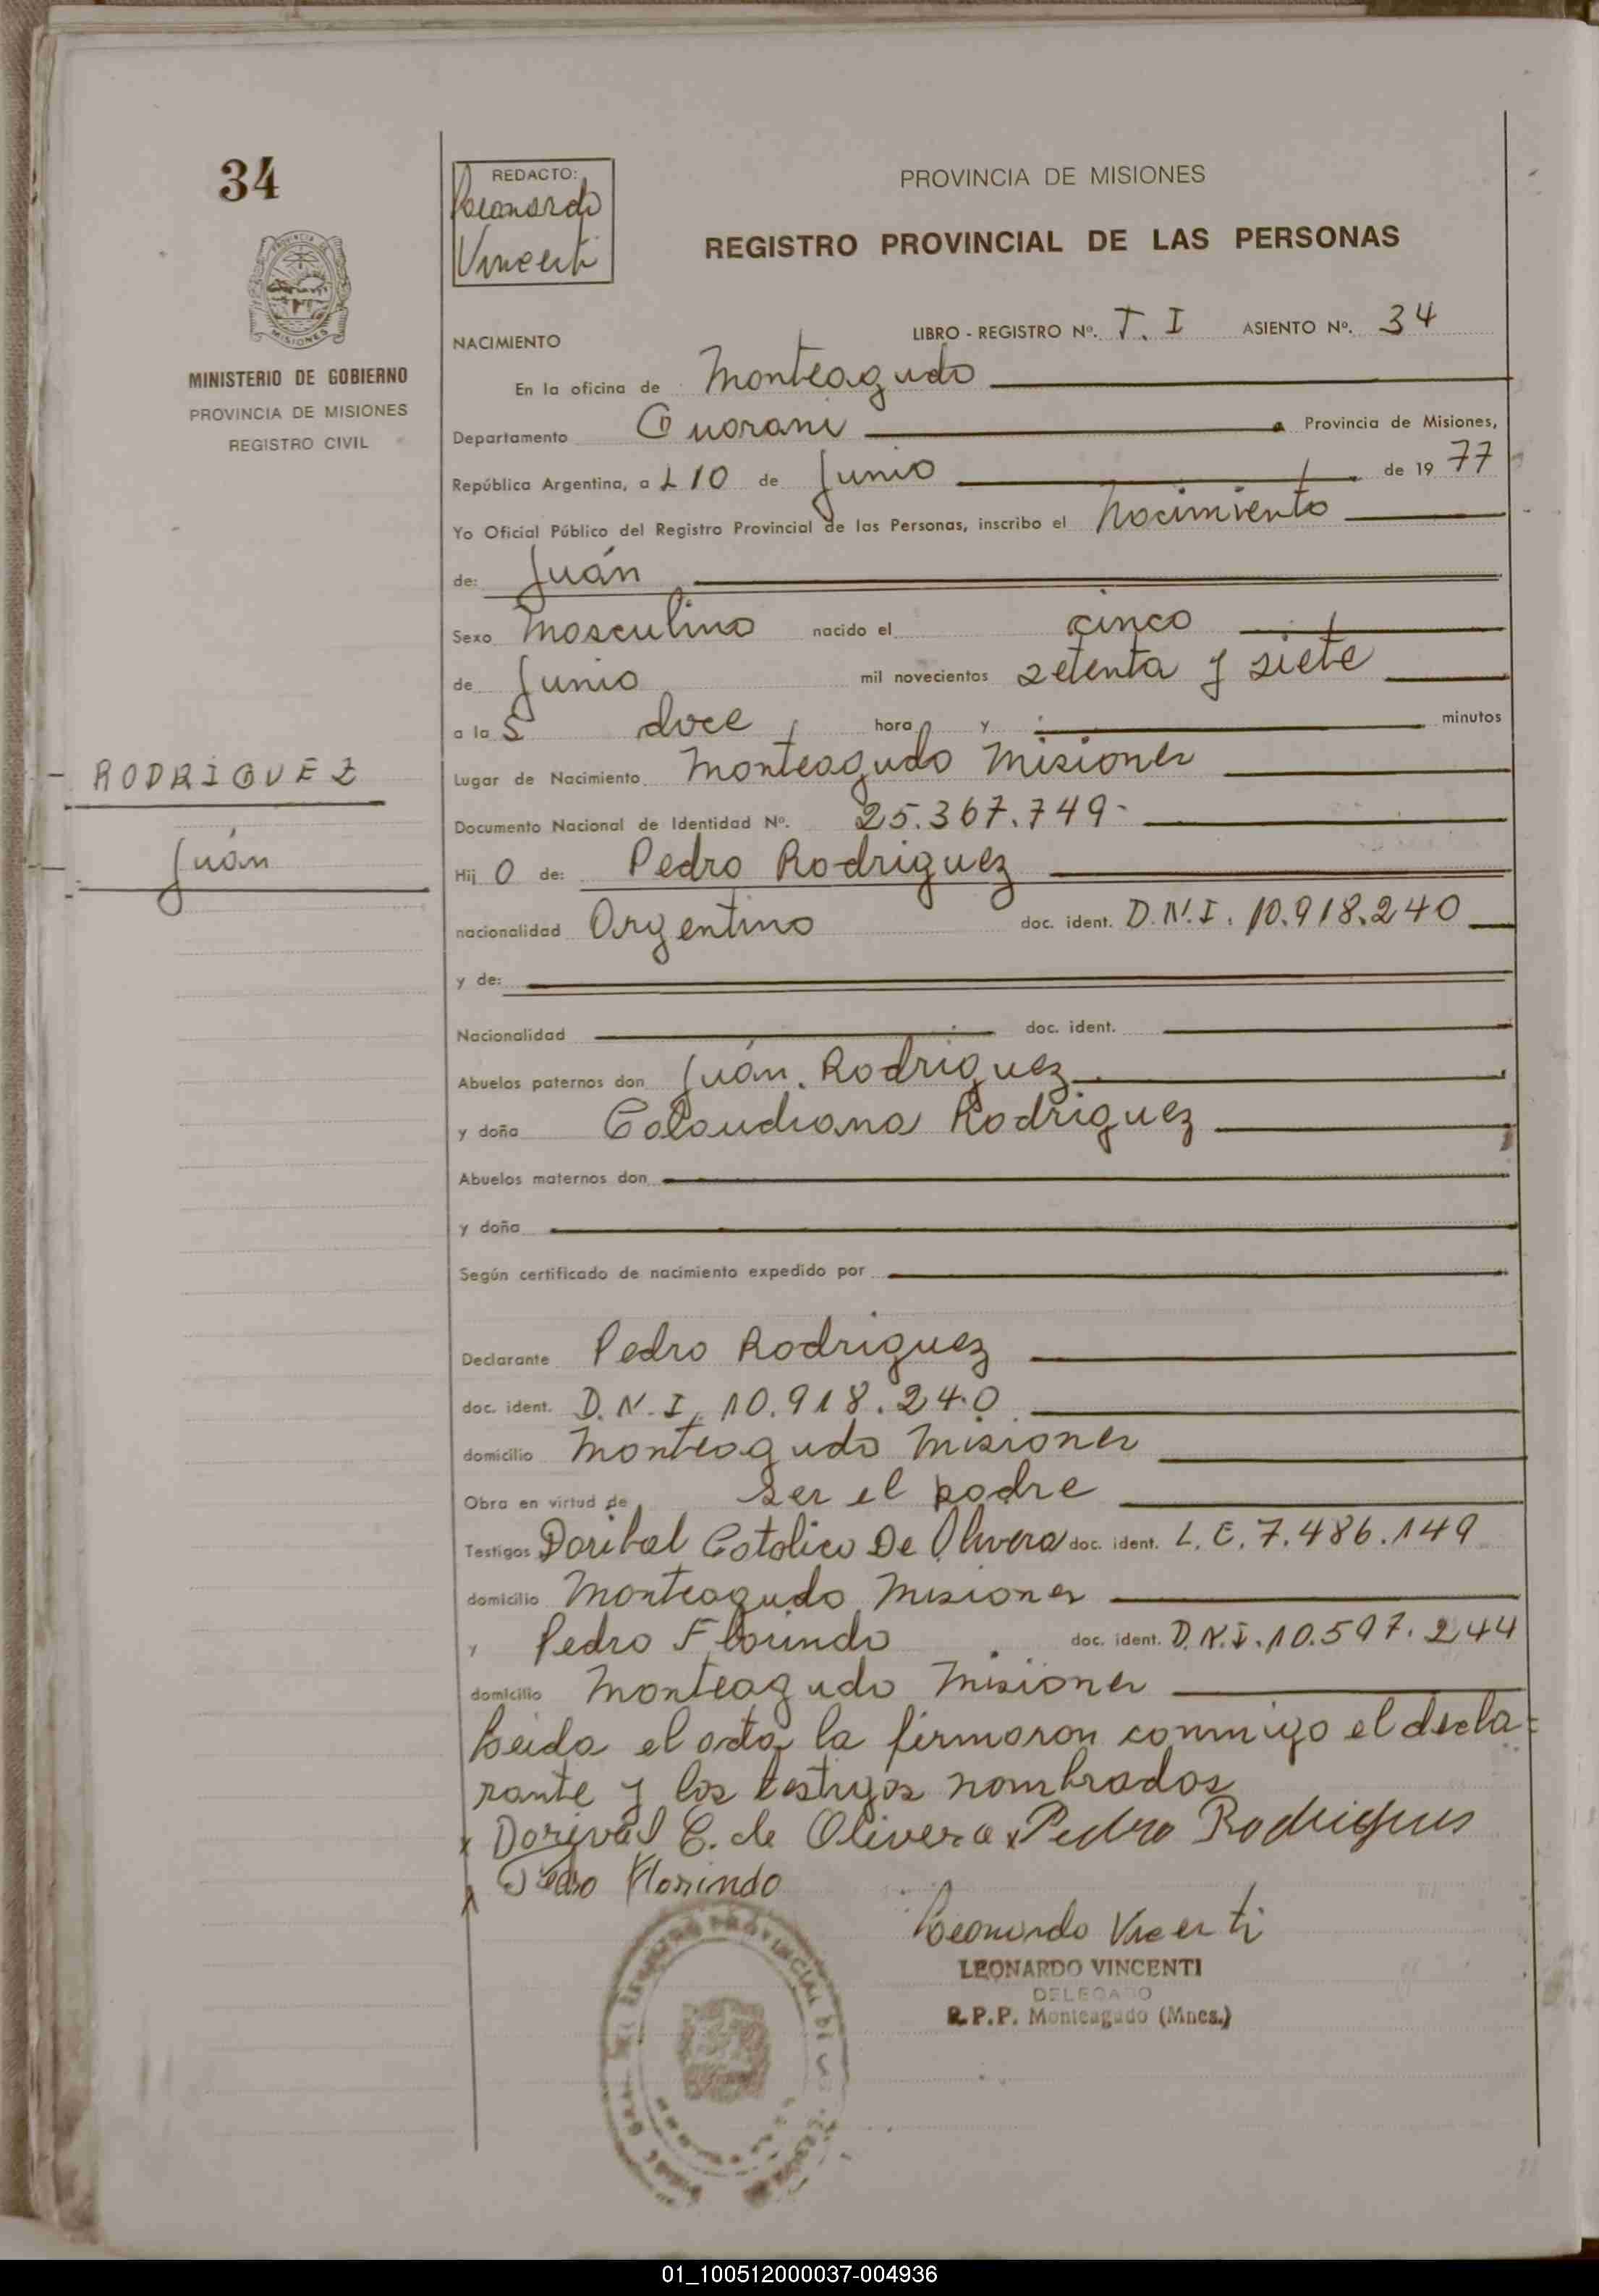 34
REDACTO:
Leonardo
Vincenti
PROVINCIA DE MISIONES
REGISTRO PROVINCIAL DE LAS PERSONAS
MINISTERIO DE GOBIERNO
PROVINCIA DE MISIONES
REGISTRO CIVIL
NACIMIENTO LIBRO - REGISTRO Nº. T. I ASIENTO Nº. 34
En la oficina de Monteagudo
Departamento Guarani Provincia de Misiones,
República Argentina, a L 10 de Junio de 19 77
Yo Oficial Público del Registro Provincial de las Personas, inscribo el Nacimiento
de: Juán
Sexo Masculino nacido el cinco
de Junio mil novecientos setenta y siete
a la S doce hora y minutos
RODRIGUEZ
Juán
Lugar de Nacimiento Monteagudo Misiones
Documento Nacional de Identidad Nº. 25.367.749-
Hij O de: Pedro Rodriguez
nacionalidad Argentino doc. ident. D.N.I. 10.918.240
y de:
Nacionalidad doc. ident.
Abuelos paternos don Juán. Rodriguez
y doña Calaudiana Rodriguez
Abuelos maternos don
y doña
Según certificado de nacimiento expedido por
Declarante Pedro Rodriguez
doc. ident. D.N.I. 10.918.240
domicilio Monteagudo Misiones
Obra en virtud de ser el padre
Testigos Doribal Catolico De Olivera doc. ident. L.E. 7.486.149
domicilio Monteagudo Misiones
y Pedro Florindo doc. ident. D.N.I. 10.597.244
domicilio Monteagudo Misiones
Leida el acta la firmaron conmigo el decla=
rante y los testigos nombrados
x Dorival C. de Olivera x Pedro Rodrigues
Pedro Florindo
Leonardo Vicenti
LEONARDO VINCENTI
DELEGADO
R.P.P. Monteagudo (Mnes.)
01_100512000037-004936